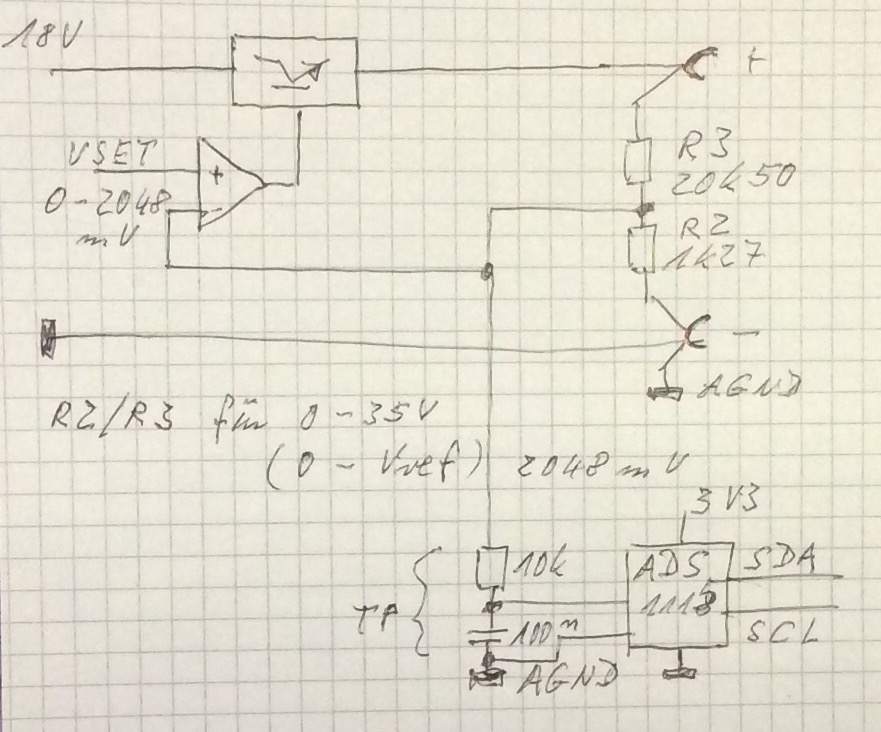 18V
+
VSET
+
0-2048
-
mV
R3
20k50
R2
1k27
-
AGND
R2/R3 für 0-35V
(0-Vref) 2048mV
3V3
TP
10k
ADS
SDA
100n
SCL
AGND